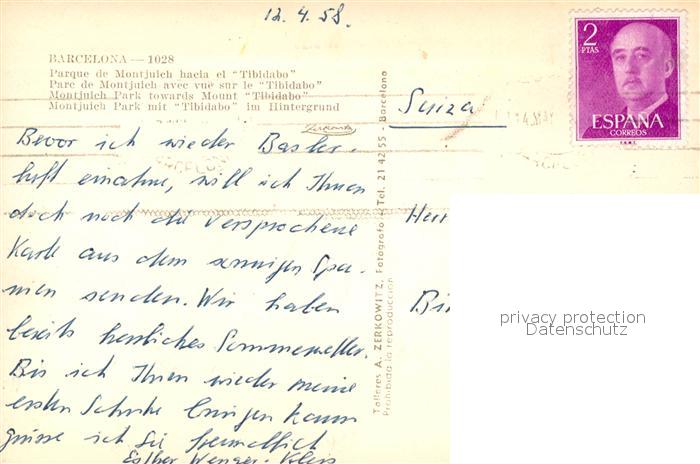 12.4.58.
BARCELONA — 1028
Parque de Montjuich hacia el "Tibidabo"
Parc de Montjuich avec vue sur le "Tibidabo"
Montjuich Park towards Mount "Tibidabo"
Montjuich Park mit "Tibidabo" im Hintergrund
Zerkowitz
Bevor ich wieder Basler-
luft einatme, will ich Ihnen
doch noch die versprochene
Karte aus dem sonnigen Spa-
nien senden. Wir haben
bereits herrliches Sommerwetter.
Bis ich Ihnen wieder meine
ersten Schuhe bringen kann
grüsse ich Sie freundlich
Esther Wenger-
Talleres A. ZERKOWITZ, Fotógrafo - Tel. 21 42 55 - Barcelona
Prohibida la reproducción
2
PTAS
ESPAÑA
CORREOS
F.N.M.T.
Suiza
Herr
privacy protection
Datenschutz